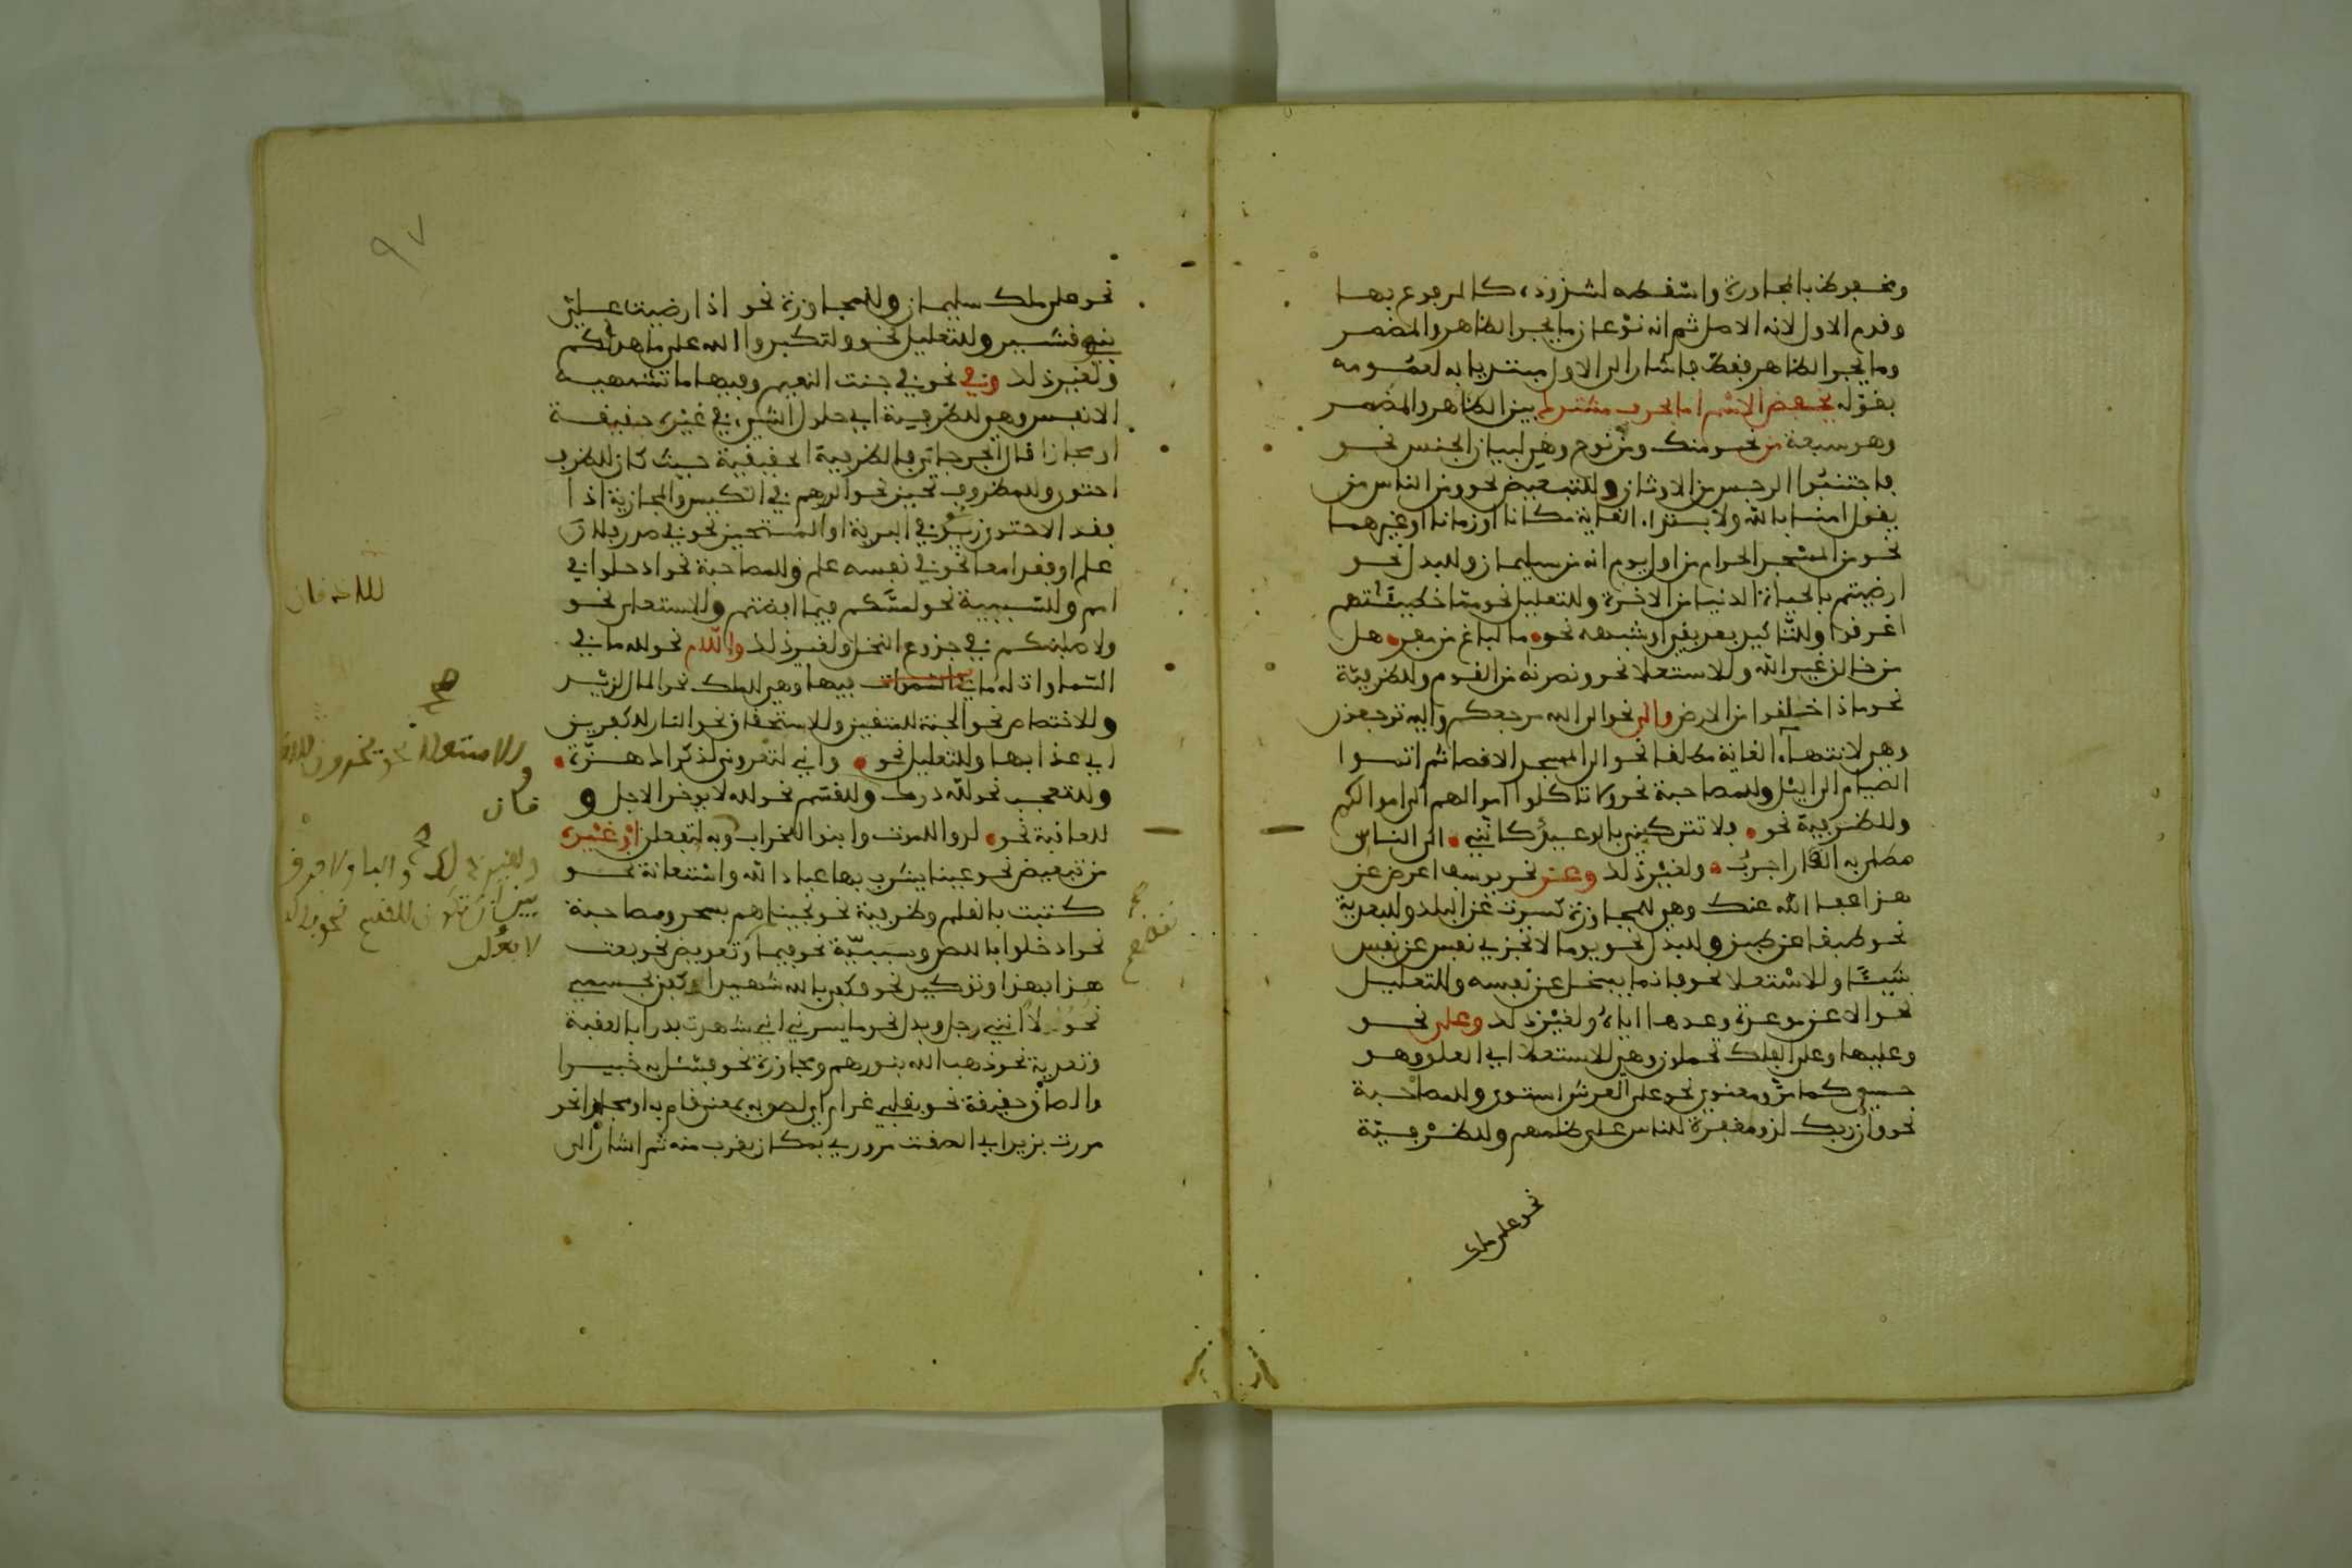 ومخفوض بالمجاورة واسقطه لشذوذه كالمرفوع بها
وقدم الاول لانه الاصل ثم انه نوعان ما يجر الظاهر والمضمر
وما يجر الظاهر فقط فاشار الى الاول مبتديا به لعمومه
بقوله يخفض الاسم اما بحرف مشترك بين الظاهر والمضمر
وهو سبعة من نحو منك ومن نوح وهي لبيان الجنس نحو
فاجتنبوا الرجس من الاوثان وللتبعيض نحو ومن الناس من
يقول امنا بالله ولابتداء الغاية مكانا او زمانا او غيرهما
نحو من المسجد الحرام من اول يوم انه من سليمان وللبدل نحو
ارضيتم بالحياة الدنيا من الاخرة وللتعليل نحو مما خطيئتهم
اغرقوا وللتاكيد بعد نفي او شبهه نحو ما لباغ من مفر هل
من خالق غير الله وللاستعلا نحو ونصرنه من القوم وللظرفية
نحو ماذا خلقوا من الارض والى نحو الى الله مرجعكم واليه ترجعون
وهي لانتهاء الغاية مطلقا نحو الى المسجد الاقصا ثم اتموا
الصيام الى اليل وللمصاحبة نحو ولا تاكلوا اموالهم الى اموالكم
وللظرفية نحو فلا تتركني بالوعيد كانني الى الناس
مطلي به القار اجرب ولغير ذلك وعن نحو يوسف اعرض عن
هذا عفا الله عنك وهي للمجاوزة كسرت عن البلد وللبعدية
نحو طبقا عن طبق وللبدل نحو يوما لا تجزي نفس عن نفس
شيئا وللاستعلا نحو فانما يبخل عن نفسه وللتعليل
نحو الا عن موعدة وعدها اياه ولغير ذلك وعلى نحو
وعليها وعلى الفلك تحملون وهي للاستعلا اي العلو وهو
حسي كما مر ومعنوي نحو على العرش استوى وللمصاحبة
نحو وان ربك لذو مغفرة للناس على ظلمهم وللظرفية
نحو على ملك
٩٧
نحو على ملك سليمان وللمجاوزة نحو اذا رضيت علي
بنو قشير وللتعليل نحو ولتكبروا الله على ما هداكم
ولغير ذلك وفي نحو في جنت النعيم وفيها ما تشتهيه
الانفس وهي للظرفية اي حلول الشيء في غيره حقيقة
او مجازا قال الجرجاني فالظرفية الحقيقية حيث كان للظرف
احتوى وللمظروف تحيز نحو الدرهم في الكيس والمجازية اذا
فقد الاحتوى نحو زيد في البرية او التحيز نحو في صدر فلان
علم او فقدا معا نحو في نفسه علم وللمصاحبة نحو ادخلوا في
امم وللسببية نحو لمسكم فيما افضتم وللاستعلى نحو
ولاصلبنكم في جذوع النخل ولغير ذلك واللام نحو لله ما في
السماوات له ما في السموات فيها وهي للملك نحو المال لزيد
وللاختصاص نحو الجنة للمتقين وللاستحقاق نحو النار للكفرين
اي عذابها وللتعليل نحو واني لتعروني لذكراك هزة
وللتعجب نحو لله درك وللقسم نحو لله لا يوخر الاجل و
للعاقبة نحو لدوا للموت وابنوا للخراب
من تبعيض نحو عينا يشرب بها عباد الله واستعانة نحو
كتبت بالقلم وظرفية نحو نجيناهم بسحر ومصاحبة
نحو ادخلوا وسببية نحو فبما وتعويض نحو بعت
هذا بهذا وتوكيد نحو وكفى بالله شهيدا وكفى بجسمي
نحولا انني رجل وبدل نحو ما يسرني اني شهدت بدرا بالعقبة
وتعدية نحو ذهب الله بنورهم ومجاوزة نحو فسئل به خبيرا
والصاق حقيقة نحو بقلبي غرام اي لصق به بمعنى قام به او مجازا نحو
مررت بزيد اي الصقت مروري بمكان يقرب منه ثم اشار الى
صح
وللاستعلا نحو يخرون للاذقان
صح